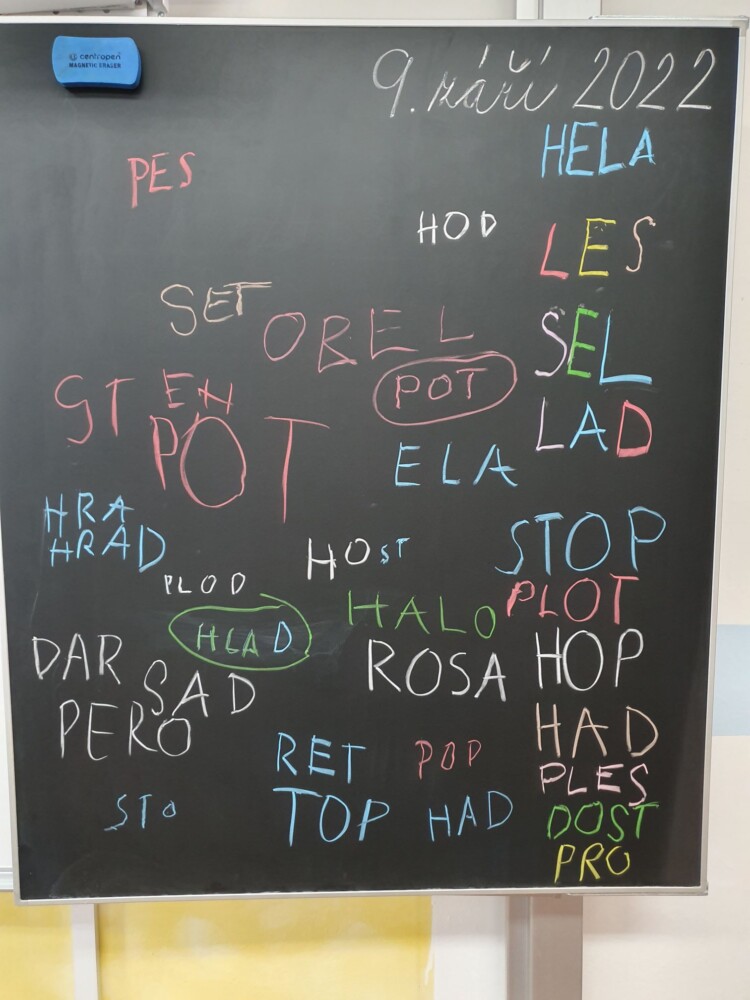 centropen
MAGNETIC ERASER
9. září 2022
HELA
PES
HOD
LES
SET
OBEL
SEL
POT
STEN
POT
LAD
ELA
HRA
HRAD
HOST
STOP
PLOD
PLOT
HALO
HLAD
DAR
ROSA
HOP
SAD
PERO
HAD
RET
POP
PLES
STO
TOP
HAD
DOST
PRO